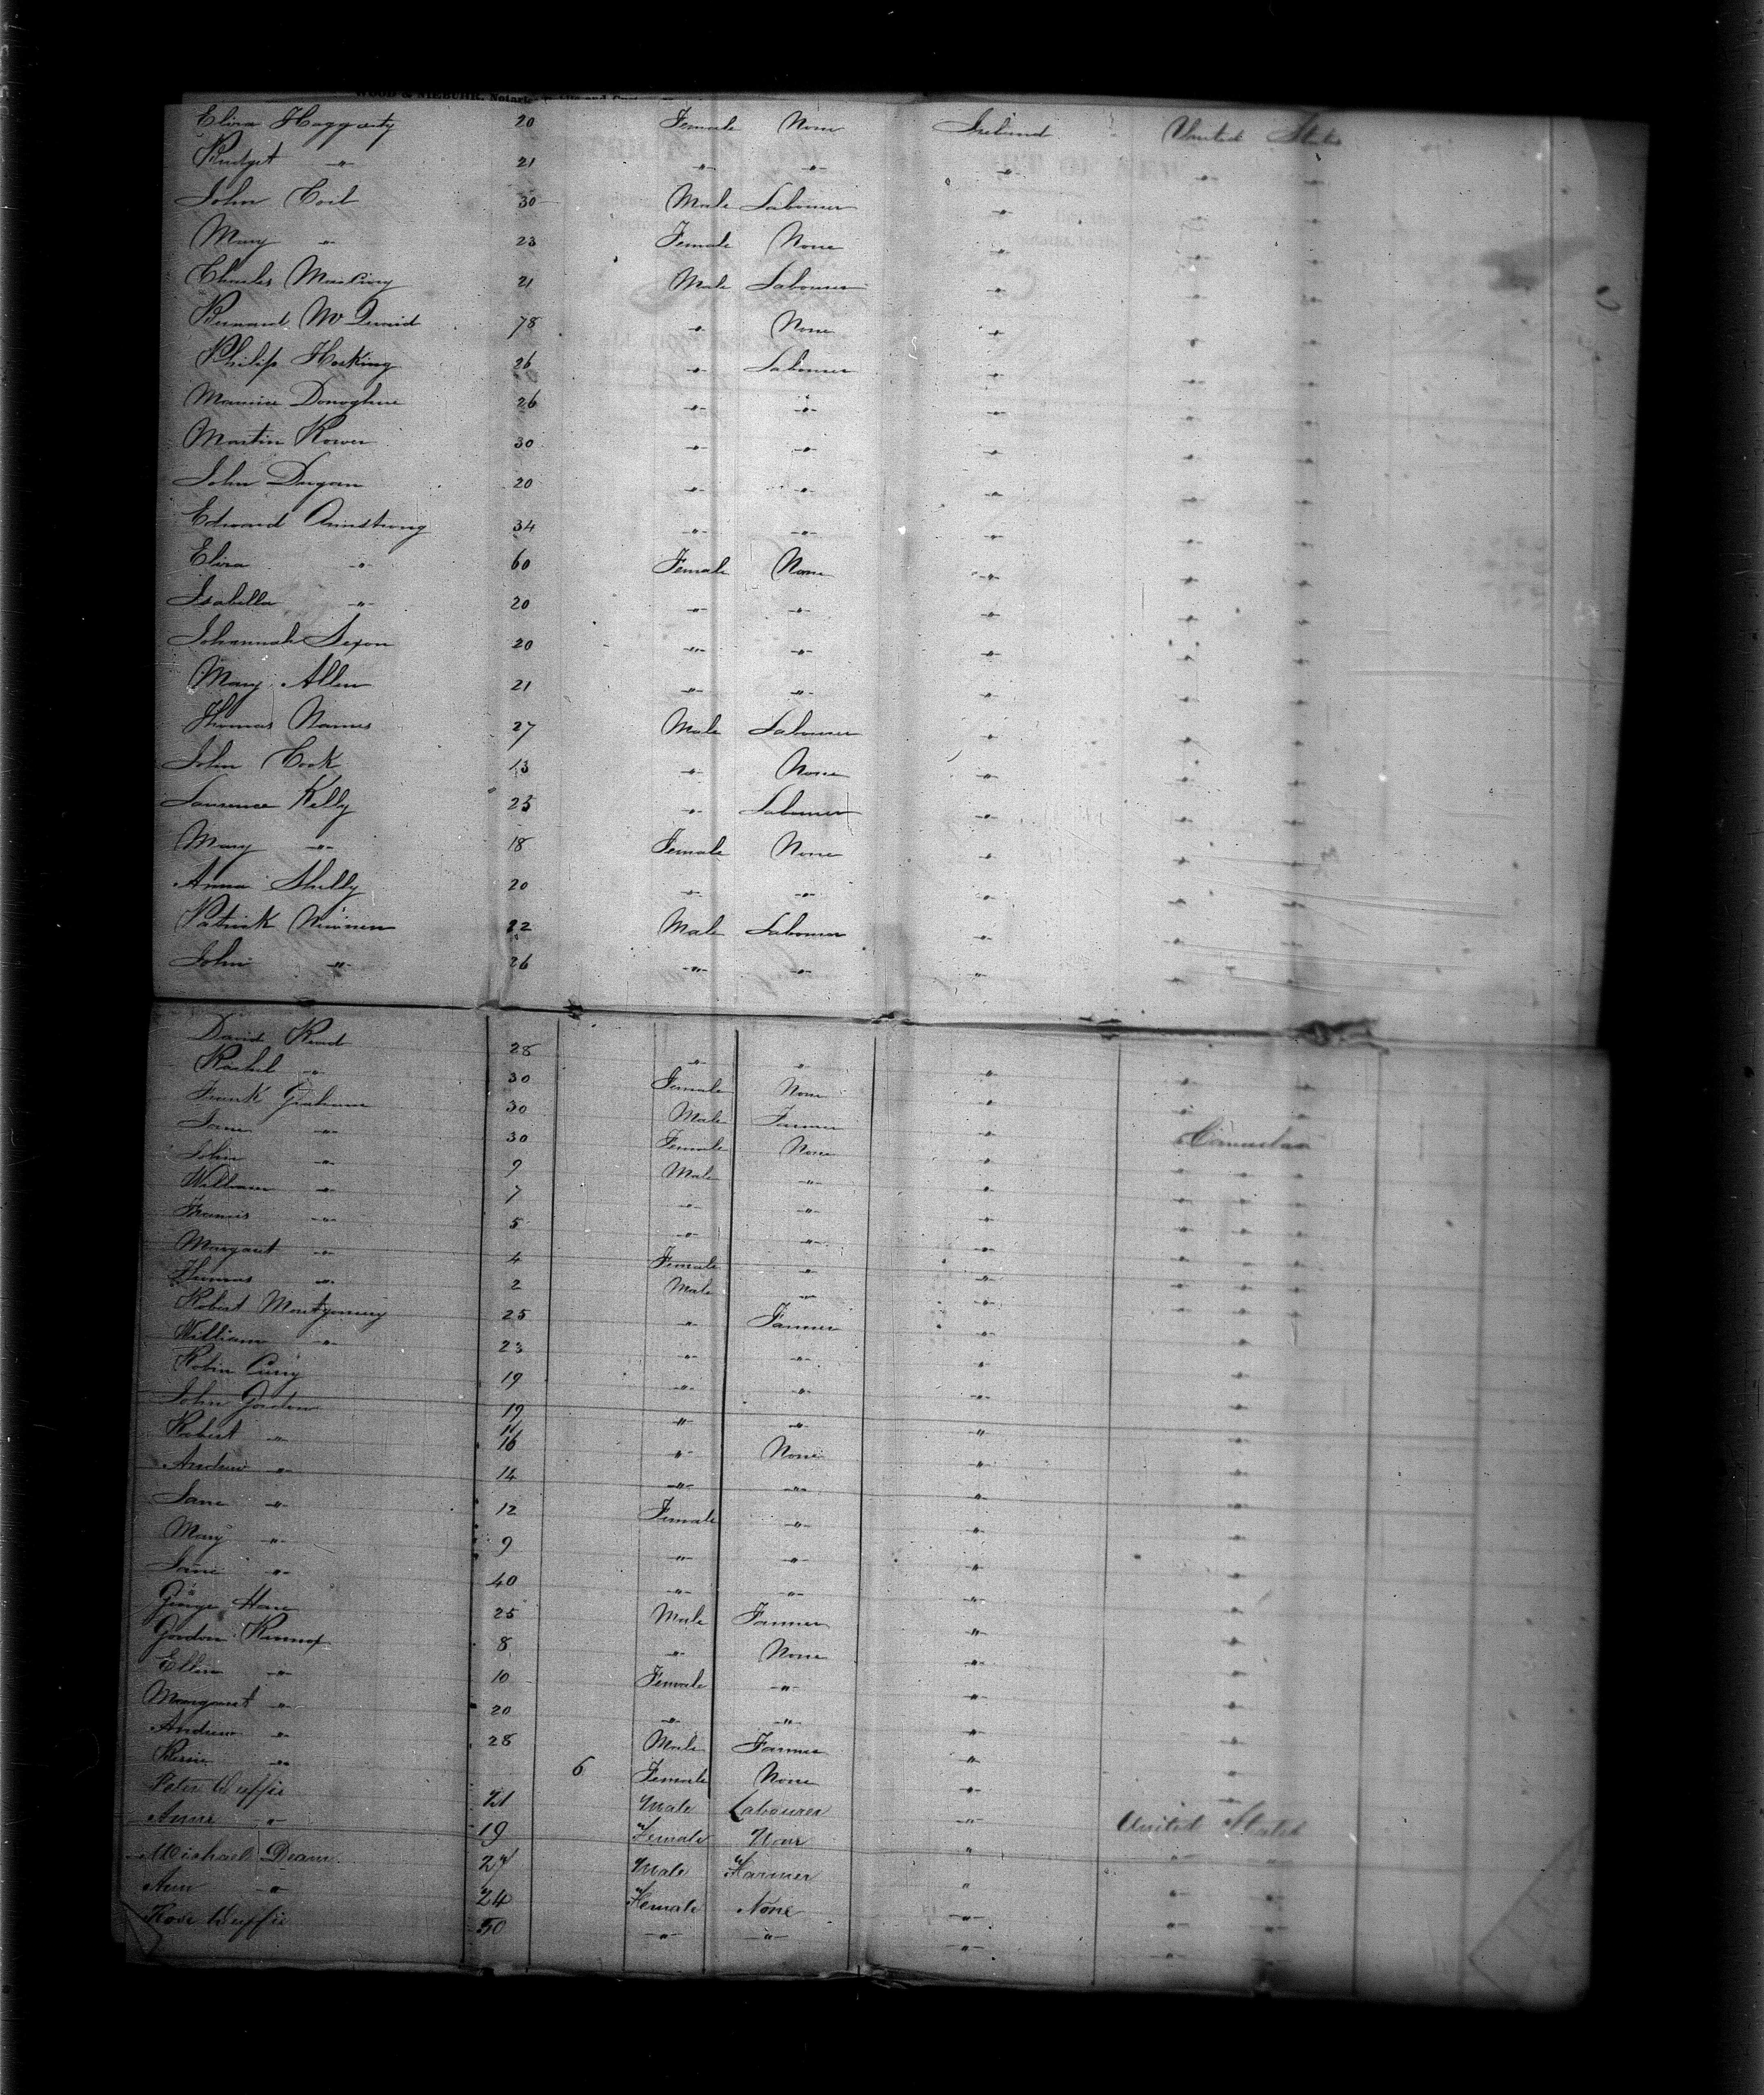 WOOD & NIEBUHR, Notari Public and
Eliza Haggarty 20 Female None Ireland United States
Bridget -"- 21 -"- -"- -"- -"- -"-
John Coil 30 Male Labourer -"- -"- -"-
Mary -"- 23 Female None -"- -"- -"-
Charles 21 Male Labourer -"- -"- -"-
Bernard 78 -"- None -"- -"- -"-
Philip Hosking 26 -"- Labourer -"- -"- -"-
Maurice Donoghue 26 -"- -"- -"- -"- -"-
Martin Power 30 -"- -"- -"- -"- -"-
John Dugan 20 -"- -"- -"- -"- -"-
Edward Armstrong 34 -"- -"- -"- -"- -"-
Eliza -"- 60 Female None -"- -"- -"-
Isabella -"- 20 -"- -"- -"- -"- -"-
Johannah Sexon 20 -"- -"- -"- -"- -"-
Mary Allen 21 -"- -"- -"- -"- -"-
Thomas 27 Male Labourer -"- -"- -"-
John Cook 13 -"- None -"- -"- -"-
Laurence Kelly 25 -"- Labourer -"- -"- -"-
Mary -"- 18 Female None -"- -"- -"-
Anna Shelly 20 -"- -"- -"- -"- -"-
Patrick 22 Male Labourer -"- -"- -"-
John -"- 26 -"- -"- -"- -"-
David 28 -"- -"- -"- -"- -"-
Rachel -"- 30 Female None -"- -"- -"-
Frank Graham 30 Male Farmer -"- Canada
Jane -"- 30 Female None -"- -"- -"-
John -"- 9 Male -"- -"- -"- -"-
William -"- 7 -"- -"- -"- -"- -"-
Francis -"- 5 -"- -"- -"- -"- -"-
Margaret -"- 4 Female -"- -"- -"- -"-
Thomas -"- 2 Male -"- -"- -"- -"-
Robert Montgomery 25 -"- Farmer -"- -"-
William -"- 23 -"- -"- -"- -"-
Robin Curry 19 -"- -"- -"- -"-
John Gordon 19 -"- -"- -"- -"-
Robert -"- 16 -"- None -"- -"-
Andrew -"- 14 -"- -"- -"- -"-
Jane -"- 12 Female -"- -"- -"-
Mary -"- 9 -"- -"- -"- -"-
Jane -"- 40 -"- -"- -"- -"-
George Hare 25 Male Farmer -"- -"-
Gordon 8 -"- None -"- -"-
Ellen -"- 10 Female -"- -"- -"-
Margaret -"- 20 -"- -"- -"- -"-
Andrew -"- 28 Male Farmer -"- -"-
-"- 6 Female None -"- -"-
Peter Duffie 21 Male Labourer -"- United States
Anne -"- 19 Female None " -"- -"-
Michael Deane 27 Male Farmer " -"- -"-
Ann -"- 24 Female None -"- -"- -"-
Rose Duffie 50 -"- -"- -"- -"-